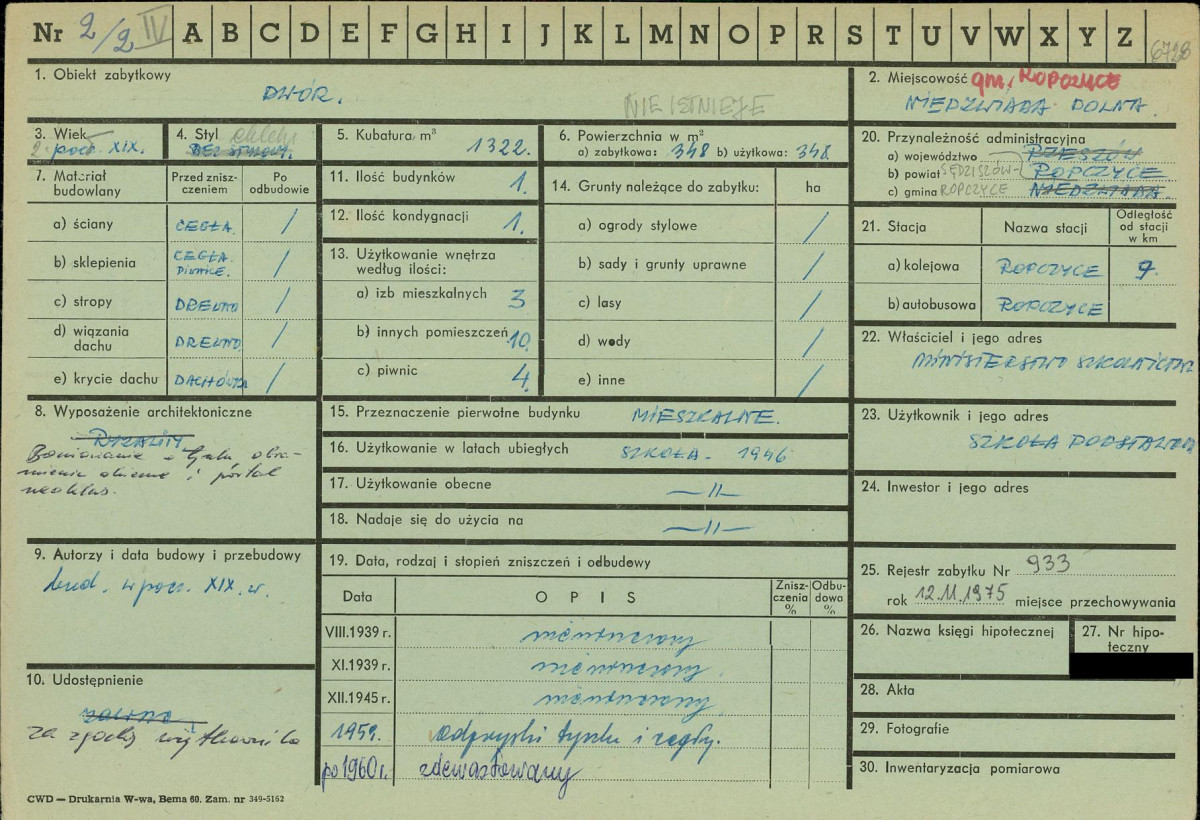 Nr 2/2 IV A B C D E F G H I J K L M N O P R S T U V W X Y Z 6728
1. Obiekt zabytkowy
DWÓR.
NIE ISTNIEJE
2. Miejscowość gm. ROPCZYCE
NIEDZWIADA DOLNA.
3. Wiek
pocz. XIX.
4. Styl
BEZ STYLOWY.
5. Kubatura, m³
1322.
6. Powierzchnia w m²
a) zabytkowa: 348 b) użytkowa: 348
7. Materiał budowlany
Przed zniszczeniem
Po odbudowie
a) ściany CEGŁA. /
b) sklepienia CEGŁA. PIWNICE. /
c) stropy DREWNO /
d) wiązania dachu DREWNO /
e) krycie dachu DACHÓWKA /
8. Wyposażenie architektoniczne
RYZALITY
portal
neoklas.
9. Autorzy i data budowy i przebudowy
bud. w pocz. XIX. w.
10. Udostępnienie
za zgodą użytkownika
11. Ilość budynków 1.
12. Ilość kondygnacji 1.
13. Użytkowanie wnętrza według ilości:
a) izb mieszkalnych 3
b) innych pomieszczeń 10.
c) piwnic 4.
14. Grunty należące do zabytku: ha
a) ogrody stylowe /
b) sady i grunty uprawne /
c) lasy /
d) wody /
e) inne /
15. Przeznaczenie pierwotne budynku MIESZKALNE.
16. Użytkowanie w latach ubiegłych SZKOŁA - 1946
17. Użytkowanie obecne —11—
18. Nadaje się do użycia na —11—
19. Data, rodzaj i stopień zniszczeń i odbudowy
Data
OPIS
Zniszczenia %
Odbudowa %
VIII.1939 r. nieniszczony
XI.1939 r. nieniszczony
XII.1945 r. nieniszczony
1959. Odpryski tynku i cegły.
po 1960 r. zdewastowany
20. Przynależność administracyjna
a) województwo RZESZÓW
b) powiat SĘDZISZÓW- ROPCZYCE
c) gmina ROPCZYCE NIEDZWIADA
21. Stacja
Nazwa stacji
Odległość od stacji w km
a) kolejowa ROPCZYCE 9.
b) autobusowa ROPCZYCE
22. Właściciel i jego adres
MINISTERSTWO SZKOLNICTWA
23. Użytkownik i jego adres
SZKOŁA PODSTAWOWA
24. Inwestor i jego adres
25. Rejestr zabytku Nr 933
rok 12.11.1975 miejsce przechowywania
26. Nazwa księgi hipotecznej
27. Nr hipoteczny
28. Akta
29. Fotografie
30. Inwentaryzacja pomiarowa
CWD — Drukarnia W-wa, Bema 60. Zam. nr 349-5162